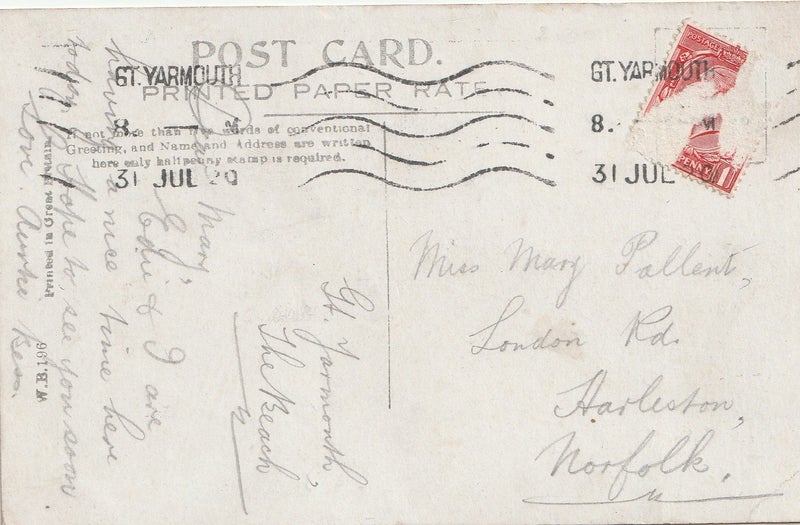 POST CARD.
PRINTED PAPER RATE
If not more than five words of conventional
Greeting, and Name and Address are written
here only halfpenny stamp is required.
GT. YARMOUTH
8.
31 JUL 29
GT. YARMOUTH
8.
31 JUL
POSTAGE
PENNY
Printed in Great Britain
W.B.196
Gt. Yarmouth,
The Beach
Dear Mary,
Edie & I are
having a nice time here
today. Hope to see you soon
Love. Auntie Bess.
Miss Mary Pallent,
London Rd.
Harleston,
Norfolk.